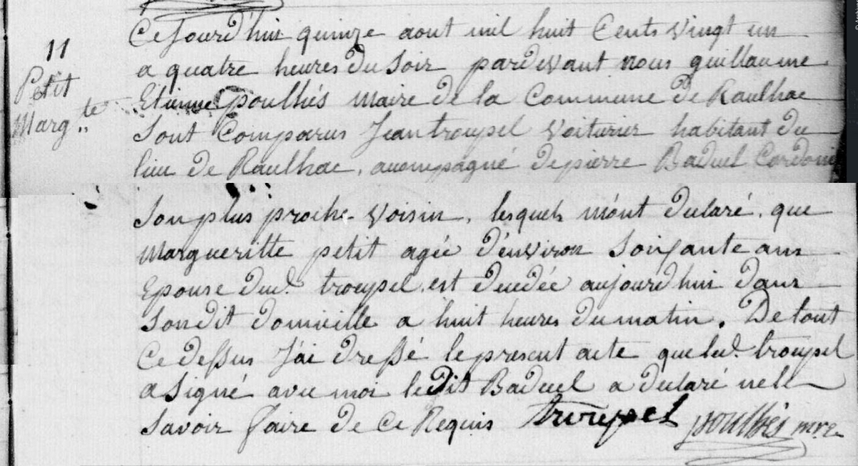 11
Petit
Marg.te
Ce jourd'hui quinze aout mil huit Cents vingt un
a quatre heures du Soir pardevant nous guillaume
Etienne poulhés maire de la Commune de Raulhac
Sont Comparus Jean troupel Voiturier habitant du
lieu de Raulhac, accompagné de pierre Baduel Cordonn
Son plus proche Voisin, lesquels m'ont déclaré que
Margueritte petit agée d'environ Soixante ans
Epouse dud. troupel est decedée aujourd'hui dans
Sondit domicille a huit heures du matin. De tout
Ce dessus J'ai dressé le present acte que led. troupel
a Signé avec moi ledit Baduel a declaré ne
Savoir faire de Ce Requis troupel poulhés mre